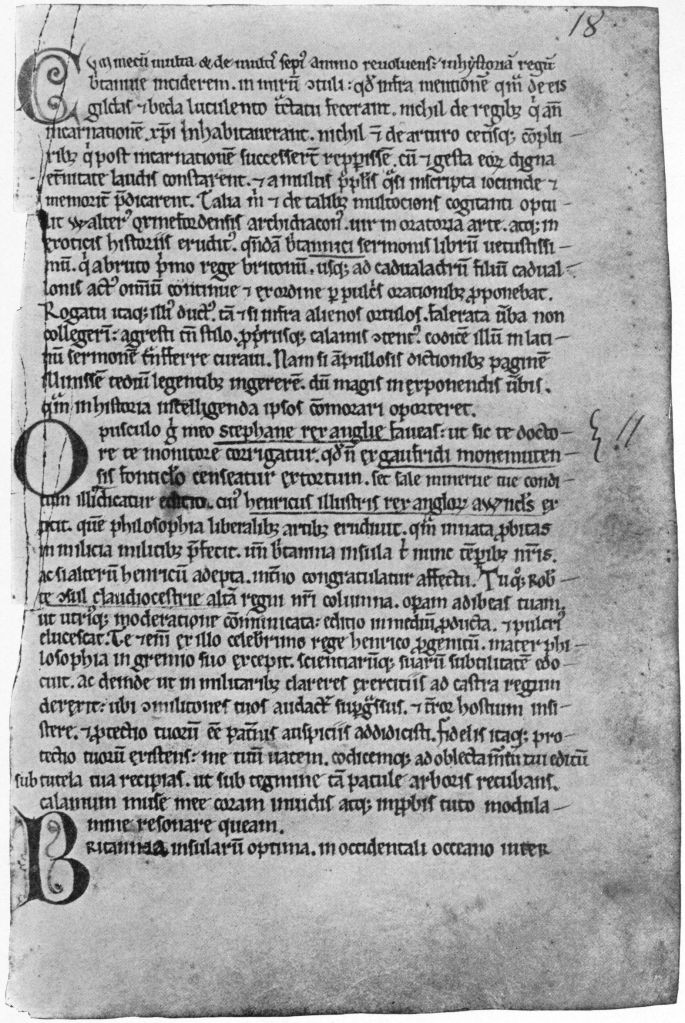 18
Cum mecū multa & de multis sepi᾽ animo reuoluens: in hystoriā regū
btannie inciderem. in mirū ɔtuli. qđ infra mentionē qm̄ de eis
gildas ⁊ beda luculento t̄ctatu fecerant. nichil de regibꝫ q̇ an̄
incarnationē. xp̄i inhabitauerant. nichil ē de arturo cet̄isqꝫ cōplu
ribꝫ q̇ post incarnationē successerūt repp̄issē. cū ⁊ gesta eoꝝ digna
et̄nitate laudis constarent. ⁊ a multis pp̄lis q̇si inscripta iocunde ⁊
memorit̄ p̄dicarent. Talia m̄ ⁊ de talibꝫ multociens cogitanti optu
lit Walter᾽ oxinefordensis archidiacon᾽. uir in oratoria arte. atqꝫ in
exoticis historiis erudit᾽. quendā btannici sermonis librū uetustissi-
mū. q̇ a bruto p̄mo rege britonū. usqꝫ ad cadualadrū filiū cadual-
lonis act᾽ om̄iū continue ⁊ ex ordine ꝑ pulcris orationibꝫ ꝓponebat.
Rogatu itaqꝫ illi᾽ duct᾽. tā ⁊ si infra alienos ortulos. falerata ūba non
collegerī: agresti tn̄ stilo. ꝓpriisqꝫ calamis ɔtent᾽. codicē illū in lati
nū sermonē t̄nsferre curaui. Nam si āpullosis dictionibꝫ paginē
illinissē tediū legentibꝫ ingererē. dū magis in exponendis ūbis.
qm̄ in historia intelligenda ipsos cōmorari oporteret.
Opusculo ḡ meo stephane rex anglie faueas: ut sic te docto-
re te monitore corrigatur. qđ n̄ ex gaufridi monemuten-
sis fonticulo censeatur extortum. set sale minerue tue condi-
tum illi᾽ dicatur editio. cui᾽ henricus illustris rex angloꝝ
. quē philosophia liberalibꝫ artibꝫ erudiuit. qm̄ innata ꝓbitas
in milicia militibꝫ p̄fecit. un̄ btannia insula t᾽ nunc tēꝑibꝫ nr̄is.
ac si alterū henricū adepta. int̄no congratulatur affectu. Tu qꝫ Rob-
te ɔsul claudiocestrie altā regni nr̄i columna. oꝑam adibeas tuam.
ut utriqꝫ moderatione cōmunicata: editio in mediū ꝓducta. ⁊ pulcri᾽
elucescat. Te eteni ex illo celeb̄rimo rege henrico ꝓgenitū. mater phi-
losophia in gremio suo excepit. scienciarūqꝫ suarū subtilitatē edo-
cuit. ac deinde ut in militaribꝫ clareres exerciciis ad castra regum
derexit: ubi ɔmilitones tuos audact᾽ sup̄gressus. ⁊ t̄ror hostium insi-
stere. ⁊ ꝓtectio tuorū eē pat̄nis auspiciis addidicisti. fidelis itaqꝫ pro-
tectio tuorū existens: me tuū uatem. codicemqꝫ ad oblectam̄tū tui editū
sub tutela tua recipias. ut sub tegmine tā patule arboris recubans.
calamum muse mee coram inuidis atqꝫ inꝓbis tuto modula-
mine resonare queam.
Britannia insularū optima. in occidentali occeano inter